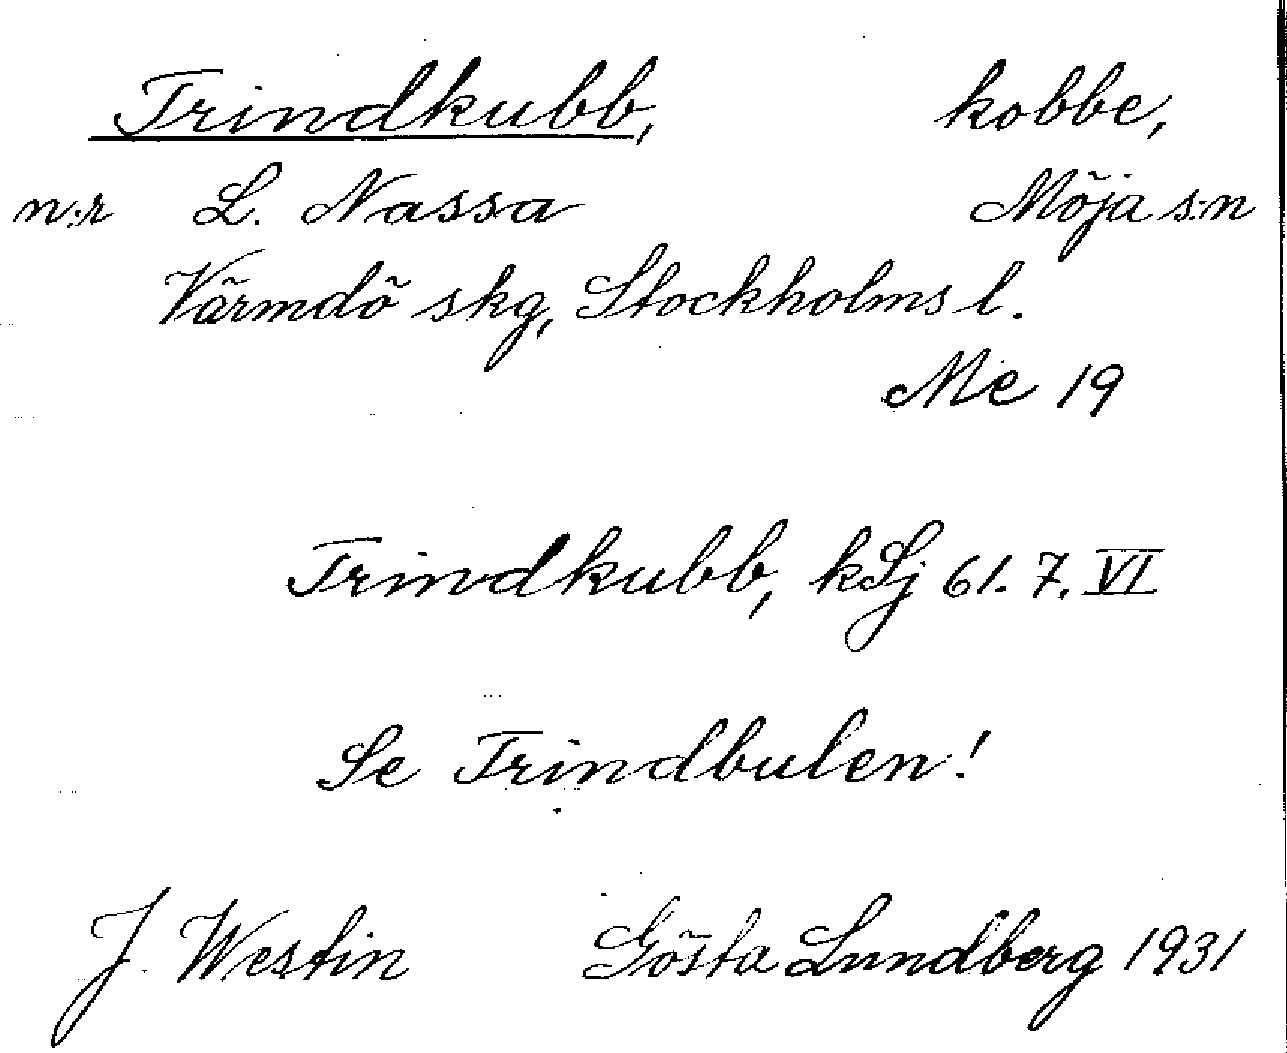 Trindkubb, kobbe,
n:r L. Nassa Möja s:n
Värmdö skg, Stockholms l.
Me 19
Trindkubb, kSj 61. 7. VI
Se Trindbulen!
J. Westin Gösta Lundberg 1931